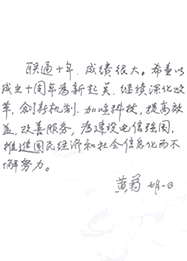 联通十年,成绩很大。希望以
成立十周年为新起点,继续深化改
革,创新机制,加强科技,提高效
益,改善服务,为建设电信强国,
推进国民经济和社会信息化而不
懈努力。
黄菊 七月一日